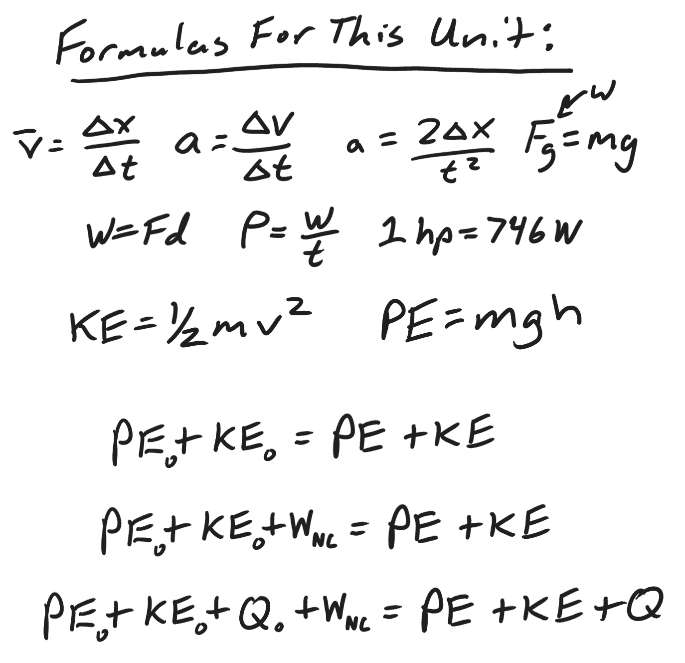 Formulas For This Unit:
v̄ = Δx/Δt  a = Δv/Δt  a = 2Δx/t²  Fg = mg  w
W=Fd  P= w/t  1 hp=746 W
KE=½mv²  PE=mgh
PE₀+KE₀ = PE+KE
PE₀+KE₀+W_NC = PE+KE
PE₀+KE₀+Q₀+W_NC = PE+KE+Q